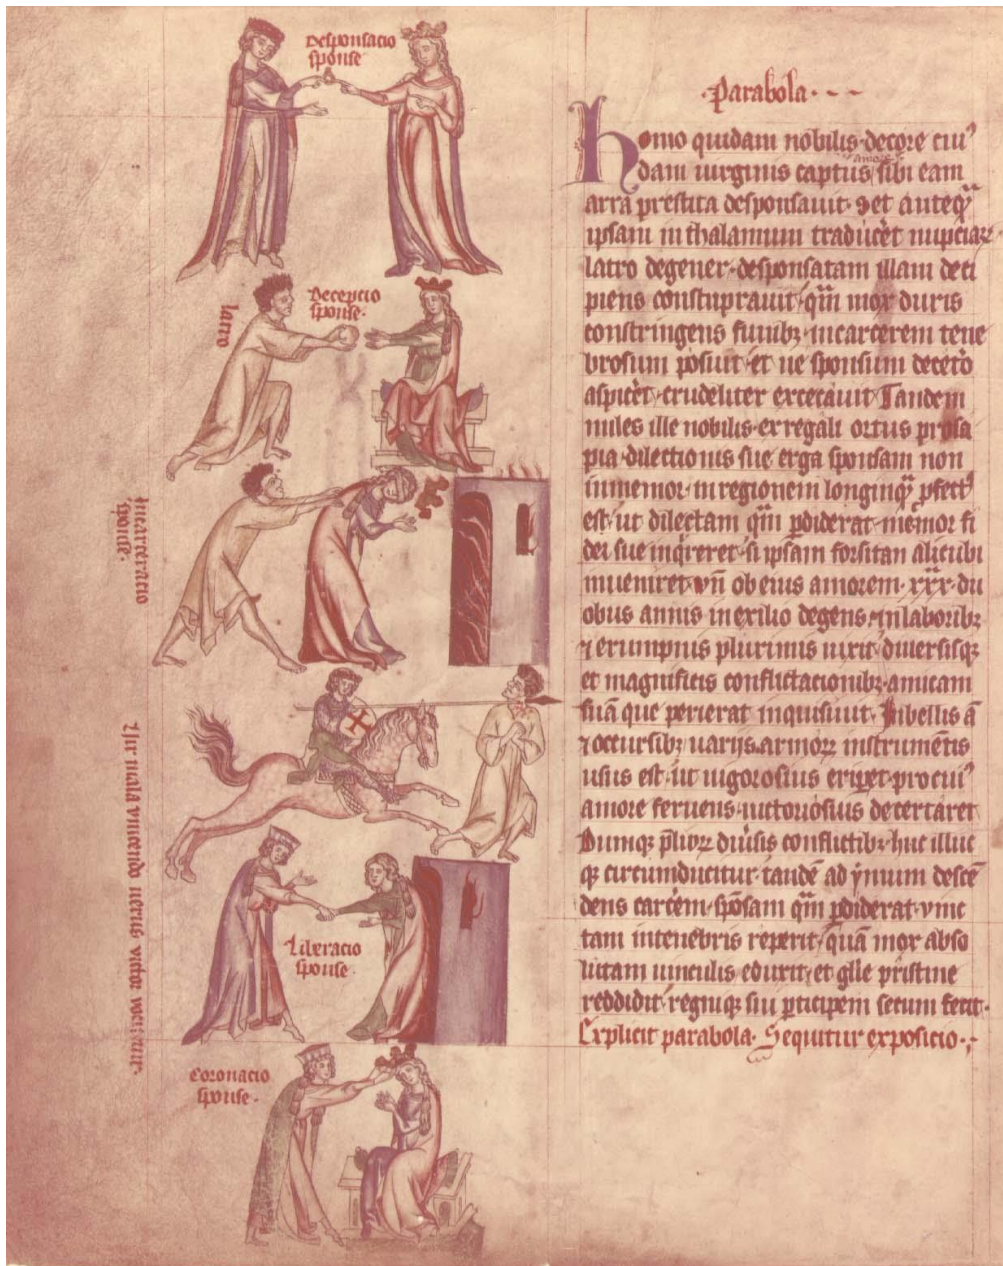 Desponsacio
sponse
latro
Decepcio
sponse.
Incarceracio
sponse.
Hic mala vincendo uerus victor
Liberacio
sponse.
Coronacio
sponse.
.Parabola.
Homo quidam nobilis decore cuiꝰ
dam uirginis captus amore sibi eam
arra prestita desponsauit. Set anteqᷓ
ipsam in thalamum traducet nupciaꝝ
latro degener desponsatam illam deci
piens constuprauit, qᷓm mox duris
constringens funibꝫ in carcerem tene
brosum posuit, et ne sponsum decero
aspicet, crudeliter excecauit Tandem
miles ille nobilis ex regali ortus prosa
pia dilectionis sue erga sponsam non
inmemor in regionem longinqᷓ pfectꝰ
est, ut dilectam qᷓm pdiderat memor fi
dei sue inqreret si ipsam forsitan alicubi
inueniret vn̄ ob eius amorem xxx. du
obus annis in exilio degens in laboribꝫ
⁊ erumpnis plurimis uixit, diuersisqꝫ
et magnificis conflictacionibꝫ amicam
suā que perierat inquisiuit. In bellis ā
⁊ occursibꝫ uariis armoꝝ instrumētis
usus est, ut uigorosius eriget pro cuiꝰ
amore feruens uictoriosius decertaret
Dumqꝫ p̄lioꝝ diuˀsis conflictibꝫ huc illuc
qꝫ circumducitur, tandē ad ymum descē
dens carcˀem, spōsam qᷓm pdiderat vinc
tam in tenebris reperit, quā mox abso
lutam uinculis eduxit, et glˀie pristine
reddidit, regniqꝫ sui pticipem secum fecit.
Explicit parabola. Sequitur exposicio.